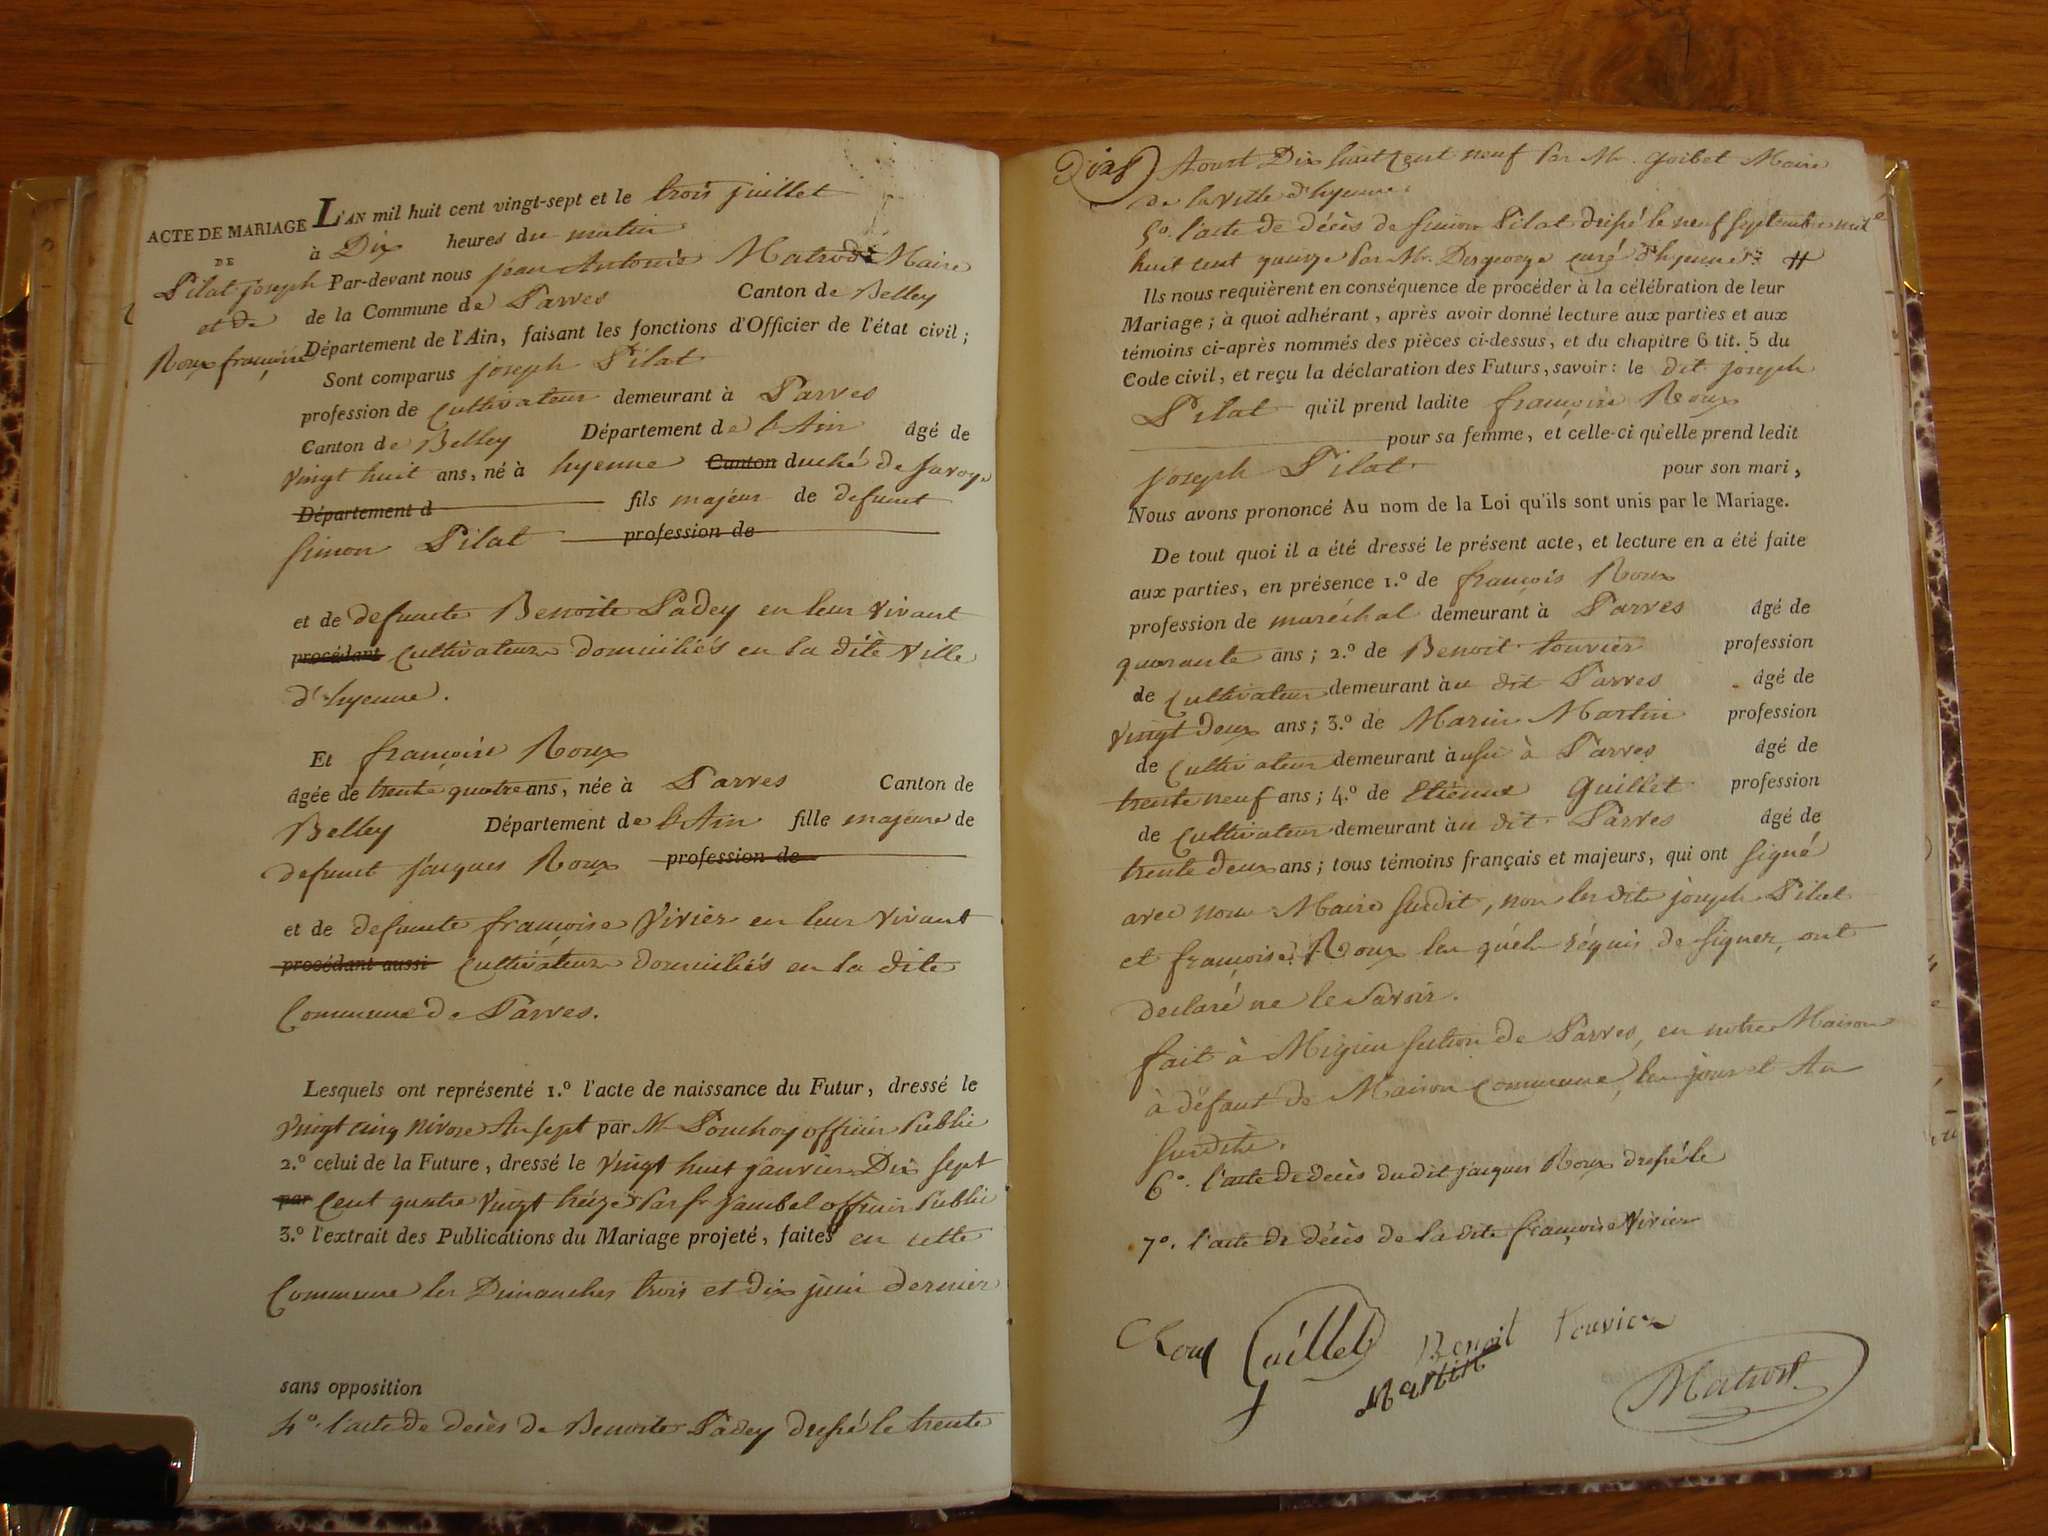 ACTE DE MARIAGE
DE
Pilat joseph
et de
Roux françoise
L'AN mil huit cent vingt-sept et le trois juillet
à Dix heures du matin
Par-devant nous jean Antoine Matrod Maire
de la Commune de Parves Canton de Belley
Département de l'Ain, faisant les fonctions d'Officier de l'état civil ;
Sont comparus joseph Pilat
profession de Cultivateur demeurant à Parves
Canton de Belley Département de l'Ain âgé de
vingt huit ans, né à hyenne Canton duché de Savoye
Département d fils majeur de defunt
Simon Pilat profession de
et de defunte Benoite Padey en leur vivant
procédant Cultivateurs domiciliés en la dite Ville
d'hyenne.
Et françoise Roux
âgée de trente quatre ans, née à Parves Canton de
Belley Département de l'Ain fille majeure de
defunt jacques Roux profession de
et de defunte françoise Vivier en leur vivant
procédant aussi Cultivateurs domiciliés en la dite
Commune de Parves.
Lesquels ont représenté 1.º l'acte de naissance du Futur, dressé le
vingt cinq nivose An sept par M Pouchoy officier Public
2.º celui de la Future, dressé le vingt huit janvier Dix sept
par Cent quatre vingt treize Par fr Jambel officier Public
3.º l'extrait des Publications du Mariage projeté, faites en cette
Commune les Dimanches trois et dix juin dernier
sans opposition
4º. l'acte de decès de Benoite Padey dressé le trente
Aoust Dix huit Cent neuf Par Mr. goibet Maire
de la Ville d'hyenne.
5º. l'acte de décès de Simon Pilat dressé le neuf Septembre mil
huit cent quinze Par Mr. Desgeorge curé d'hyenne #
Ils nous requièrent en conséquence de procéder à la célébration de leur
Mariage ; à quoi adhérant, après avoir donné lecture aux parties et aux
témoins ci-après nommés des pièces ci-dessus, et du chapitre 6 tit. 5 du
Code civil, et reçu la déclaration des Futurs, savoir : le dit joseph
Pilat qu'il prend ladite françoise Roux
pour sa femme, et celle-ci qu'elle prend ledit
joseph Pilat pour son mari,
Nous avons prononcé Au nom de la Loi qu'ils sont unis par le Mariage.
De tout quoi il a été dressé le présent acte, et lecture en a été faite
aux parties, en présence 1.º de françois Roux
profession de maréchal demeurant à Parves âgé de
quarante ans ; 2.º de Benoit touvier profession
de Cultivateur demeurant à au dit Parves âgé de
vingt deux ans ; 3.º de Marin Martin profession
de Cultivateur demeurant aussi à Parves âgé de
trente neuf ans ; 4.º de Etienne Guillet profession
de Cultivateur demeurant au dit Parves âgé de
trente deux ans ; tous témoins français et majeurs, qui ont signé
avec nous Maire susdit, non les dits joseph Pilat
et françoise Roux les quels réquis de signer, ont
declaré ne le savoir.
fait à Migieu Section de Parves, en notre Maison
à défaut de Maison Commune, les jour et An
susdits.
6º. l'acte de decès du dit jacques Roux dressé le
7º. l'acte de décès de la dite françoise Vivier
Roux Guillet Benoit Touvier
Martin
Matrod